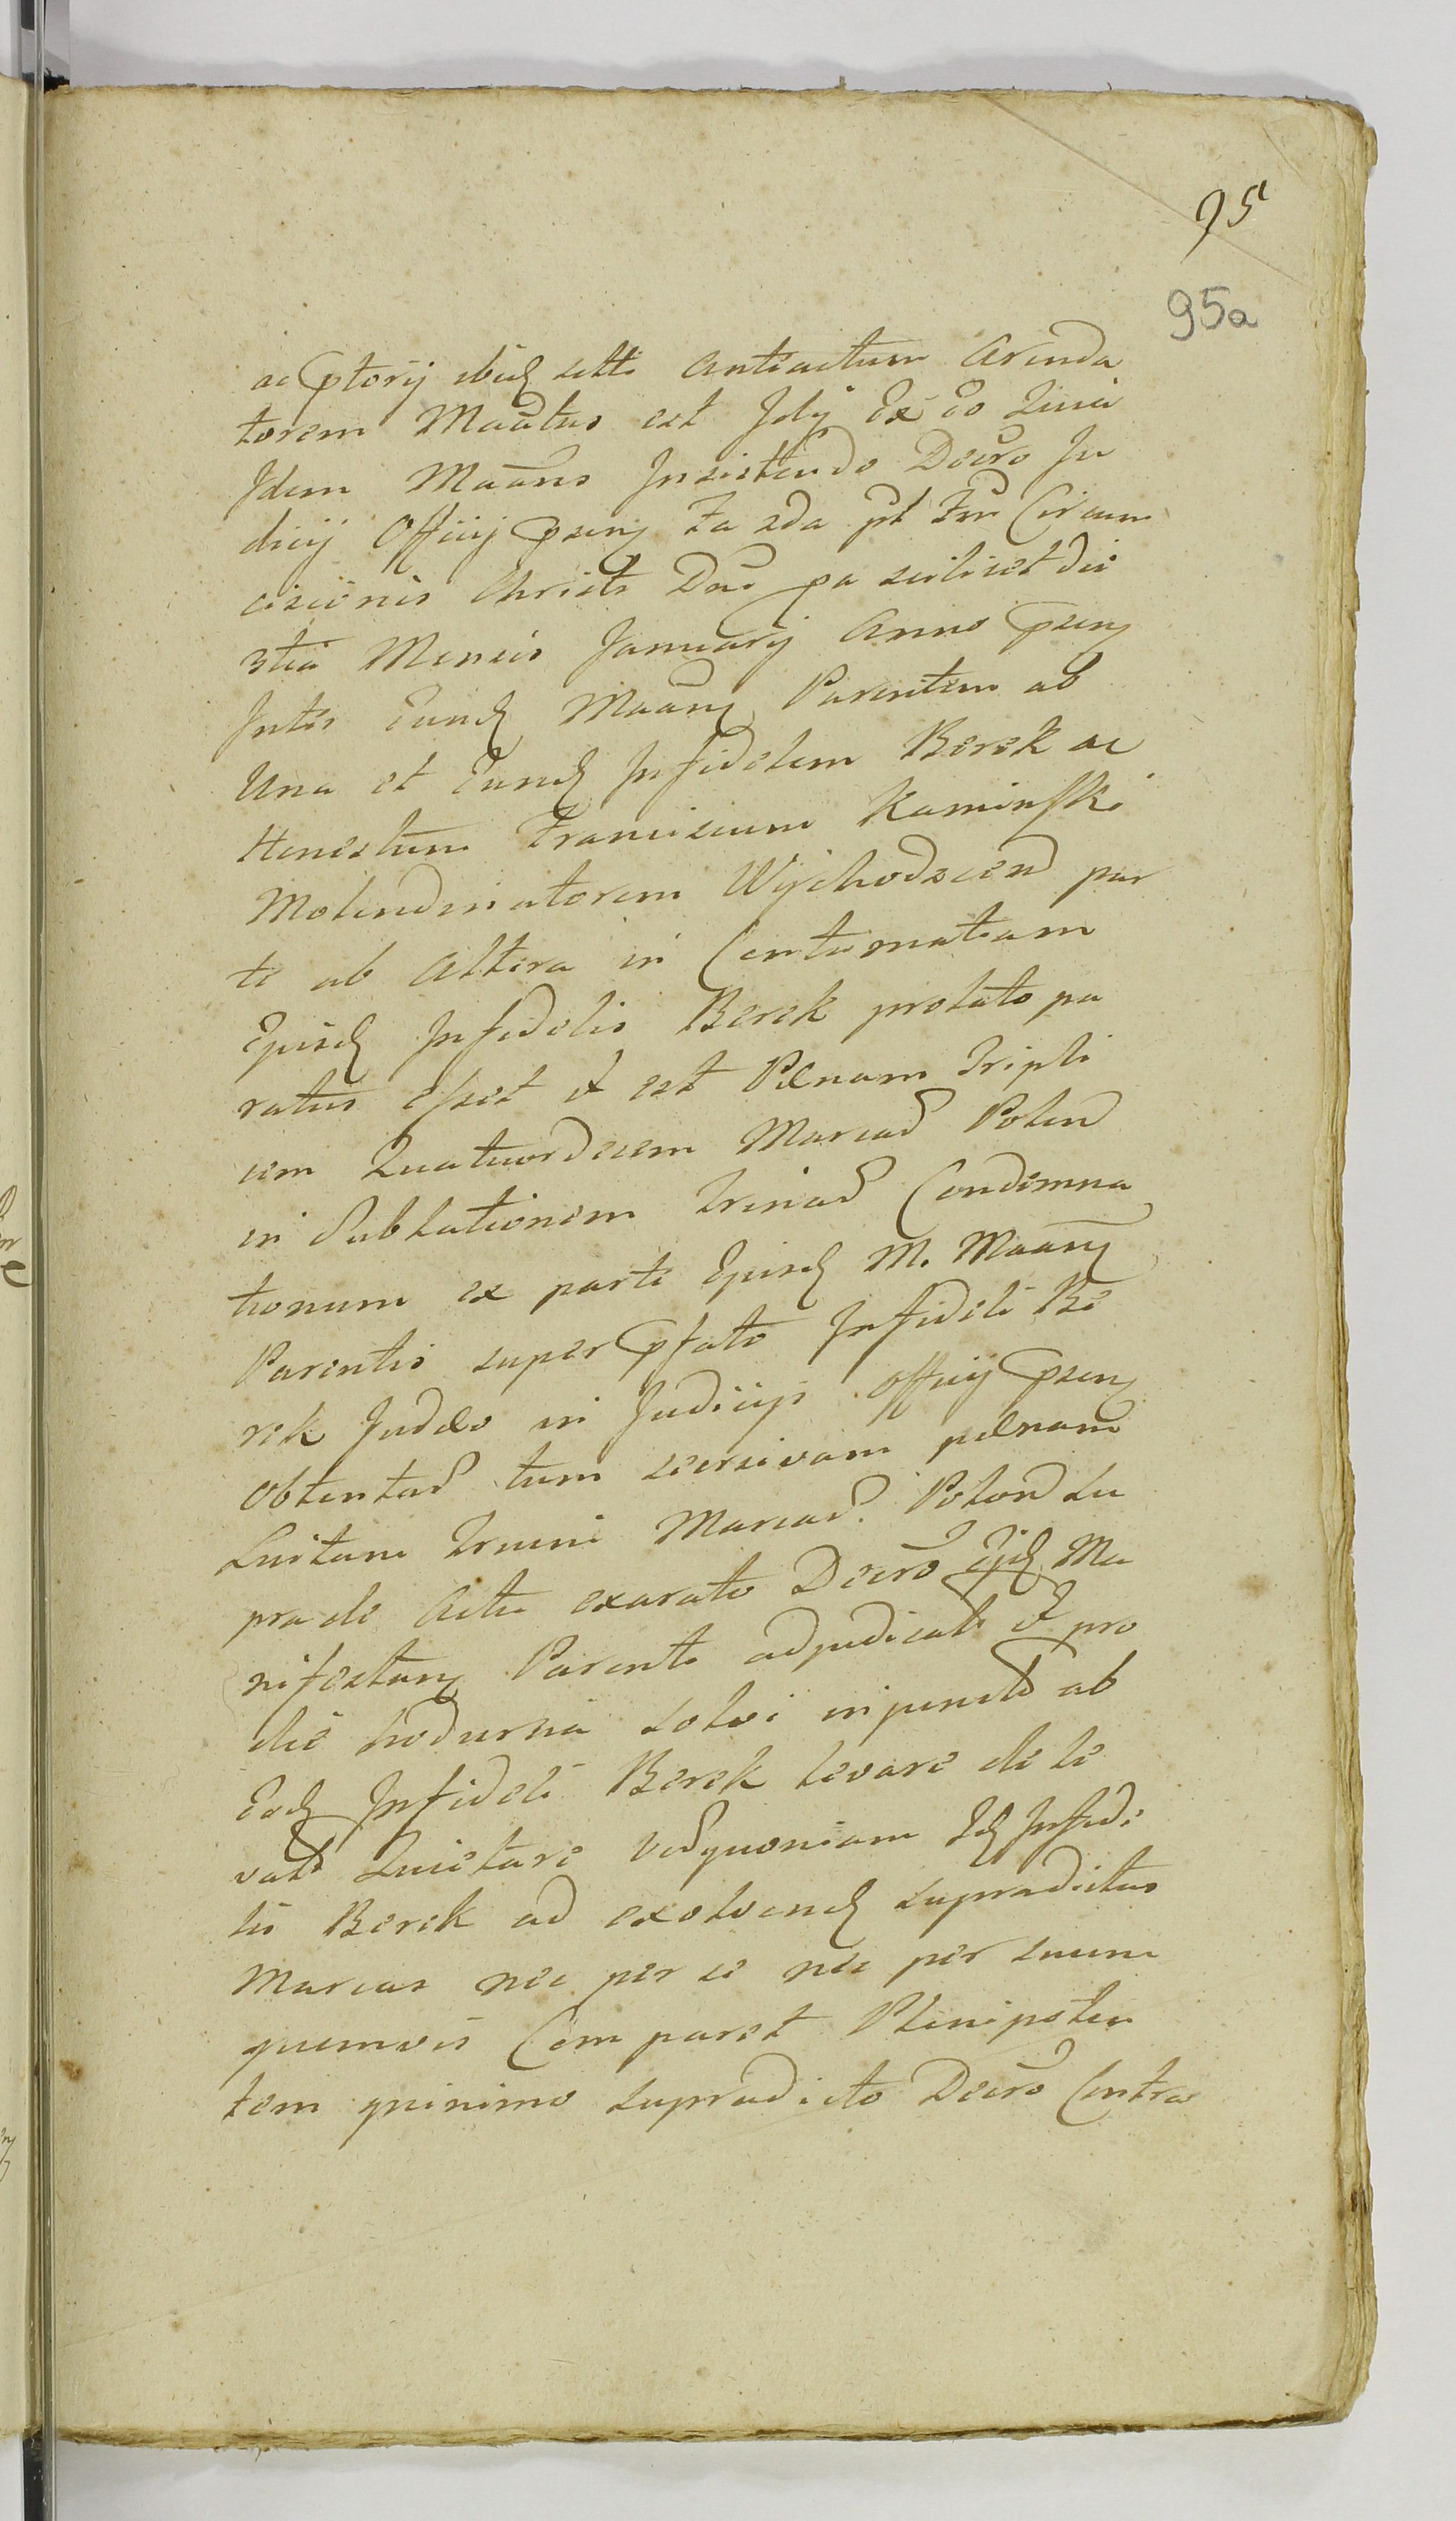 95
95a
ac ptorij ibid sitti Antiactum Arenda
torem Maātus est Idq Ex Eo Quia
Idem Maāns Insistendo Decro Iu
dicij Officij psenq Fa 2da pt Fm Circum
cisionis Christi Dni pa scilicet die
3tia Mensis Januarij Anno psenq
Inter Eund Maānq Parentem ab
Una et Eund Infidelem Berek ac
Honestum Franciscum Kaminski
Molendinatorem Wychodzcen par
te ab Altera in Contumatiam
Ejusd Infidelis Berek prolato pa
ratus esset et est Pænam Tripli
cem Quatuordecem Marcar Polon
in Sublationem Trinar Condemna
tionum ex parte Ejusd M. Maānq
Parentis super pfato Infideli Be
rek Judæo in Judicijs Officij psenq
Obtentar tum seorsivam pænam
Luitam Trium Marcar. Polon Su
pra de Actu exarato Decro Ejd Ma
nifestanq Parenti adjudicat et pro
die hodierna solvi injunct ab
Eod Infideli Berek levare de le
vat Quietare Verquoniam Id Infide
lis Berek ad exolvend supradictas
Marcas nec per se nec per suum
quemvis Comparet Plenipoten
tem quinimo supradicto Decro Contra